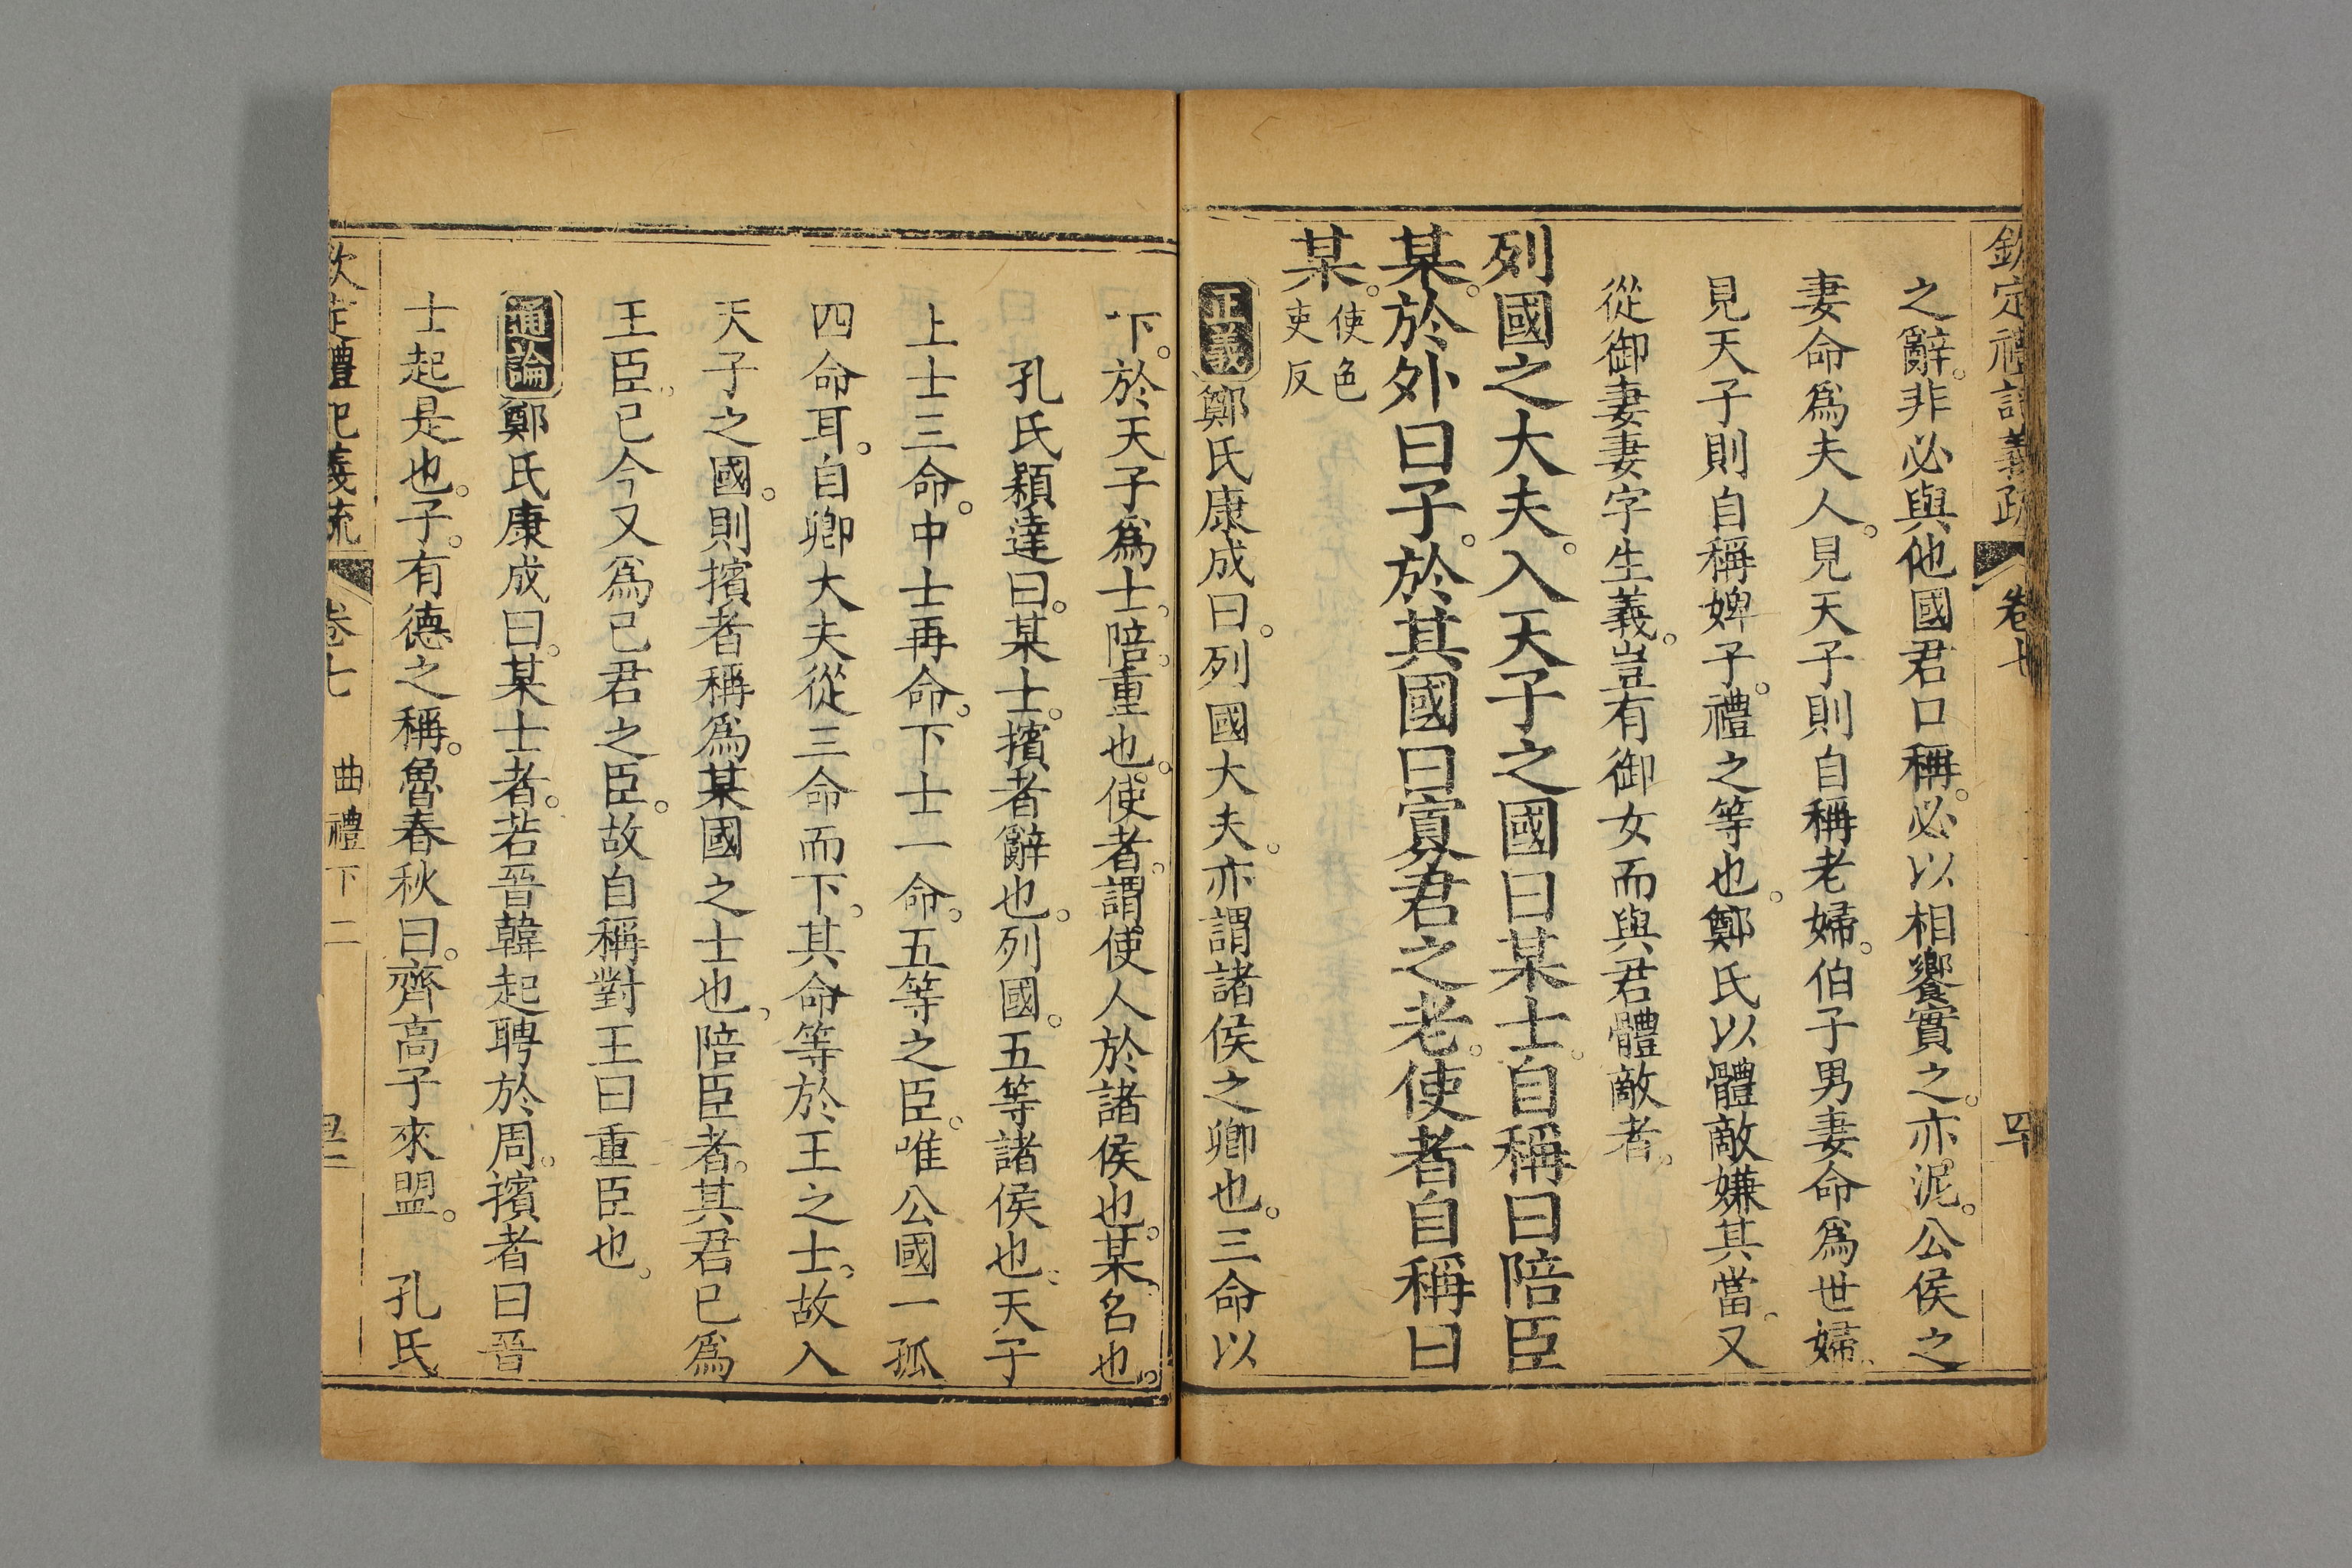 欽定禮記義疏 卷七 四十
之辭。非必與他國君口稱。必以相饗賓之。亦泥。公侯之
妻命爲夫人。見天子則自稱老婦。伯子男妻命爲世婦。
見天子則自稱婢子。禮之等也。鄭氏以體敵嫌其當。又
從御妻妻字生義。豈有御女而與君體敵者。
列國之大夫。入天子之國曰某士。自稱曰陪臣
某。於外曰子。於其國曰寡君之老。使者自稱曰
某。使色吏反
正義 鄭氏康成曰。列國大夫。亦謂諸侯之卿也。三命以
下。於天子爲士。陪重也。使者。謂使人於諸侯也。某。名也。
孔氏穎達曰。某士。擯者辭也。列國。五等諸侯也。天子
上士三命。中士再命。下士一命。五等之臣。唯公國一孤
四命耳。自卿大夫從三命而下。其命等於王之士。故入
天子之國。則擯者稱爲某國之士也。陪臣者。其君已爲
王臣。已今又爲己君之臣。故自稱對王曰重臣也。
通論 鄭氏康成曰。某士者。若晉韓起聘於周。擯者曰晉
士起是也。子。有德之稱。魯春秋曰。齊高子來盟。 孔氏
欽定禮記義疏 卷七 曲禮下二